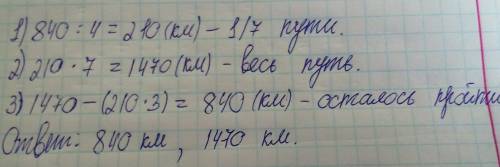 1) 840 : 4 = 210 (км) - 1/7 пути.
2) 210 · 7 = 1470 (км) - весь путь.
3) 1470 - (210 · 3) = 840 (км) - осталось пройти
Ответ: 840 км, 1470 км.